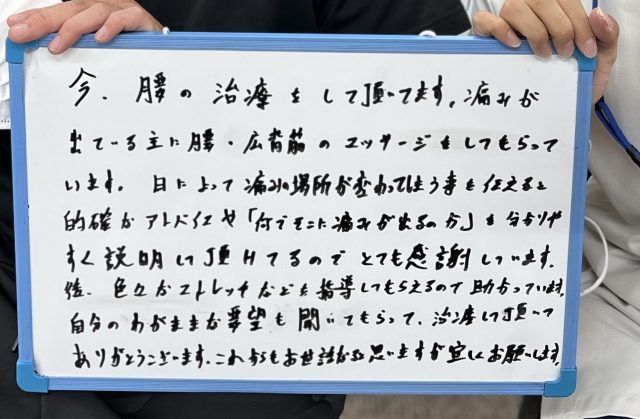 今、腰の治療をして頂いてます。痛みが
出ている主に腰・広背筋のマッサージをしてもらって
います。日によって痛みの場所が変わってしまう事を伝えると
的確なアドバイスや「何でそこに痛みが出るのか」を分かりや
すく説明して頂けてるのでとても感謝しています。
後、色々なストレッチなどを指導してもらえるので助かっています。
自分のわがままな要望も聞いてもらって、治療して頂いて
ありがとうございます。これからもお世話になると思いますが宜しくお願いします。